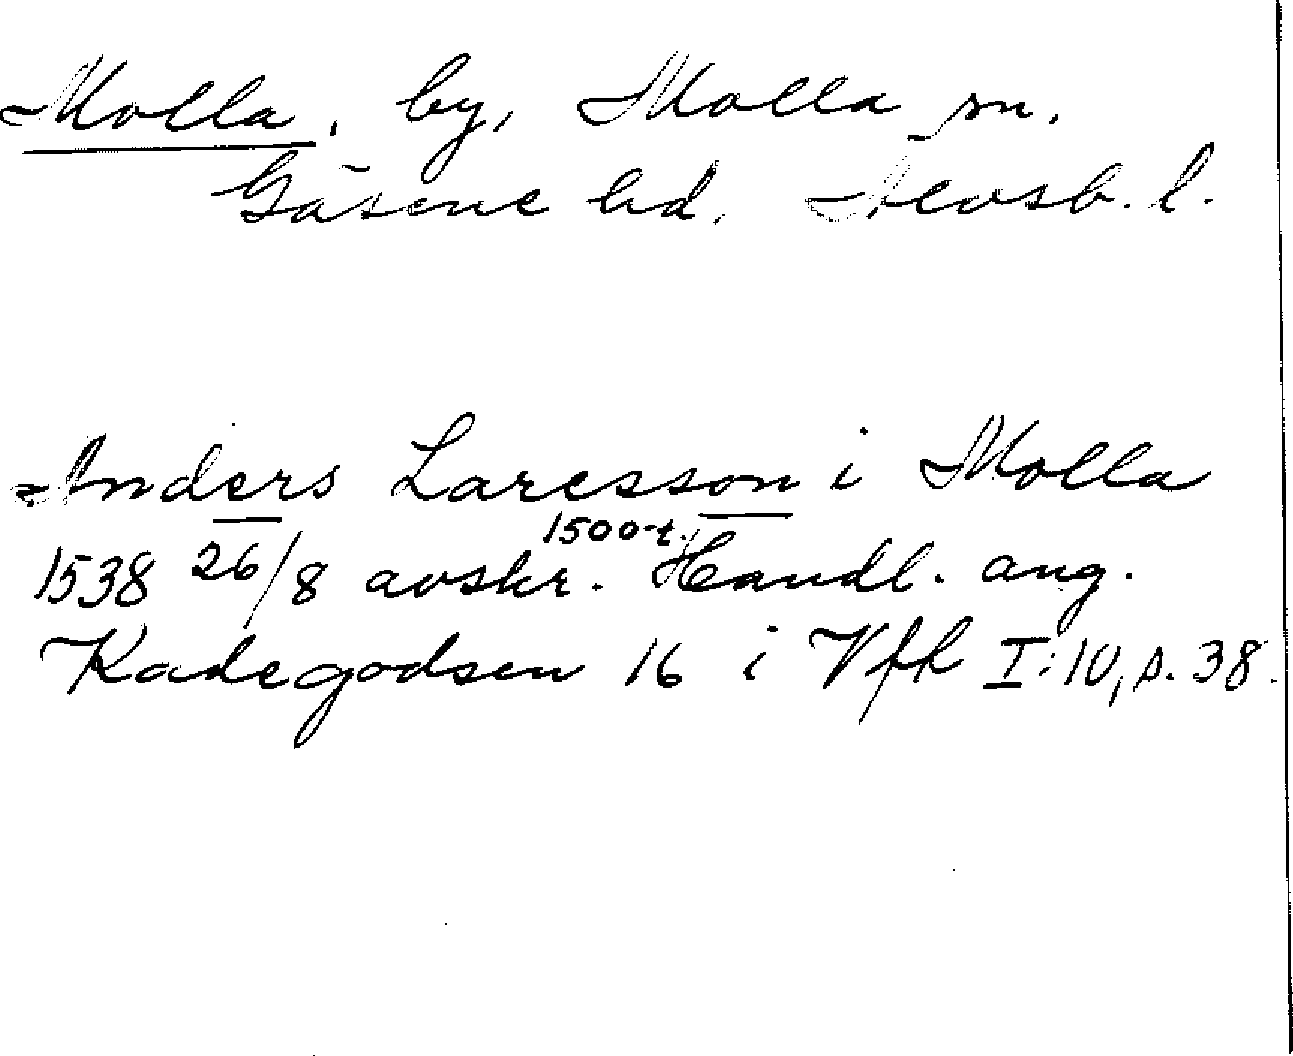 Molla, by, Molla sn.
Gäsene hd. Älvsb. l.
Anders Laresson i Molla
1500-t.
1538 26/8 avskr. Handl. ang.
Kadegodsen 16 i Vfh I:10, s. 38.